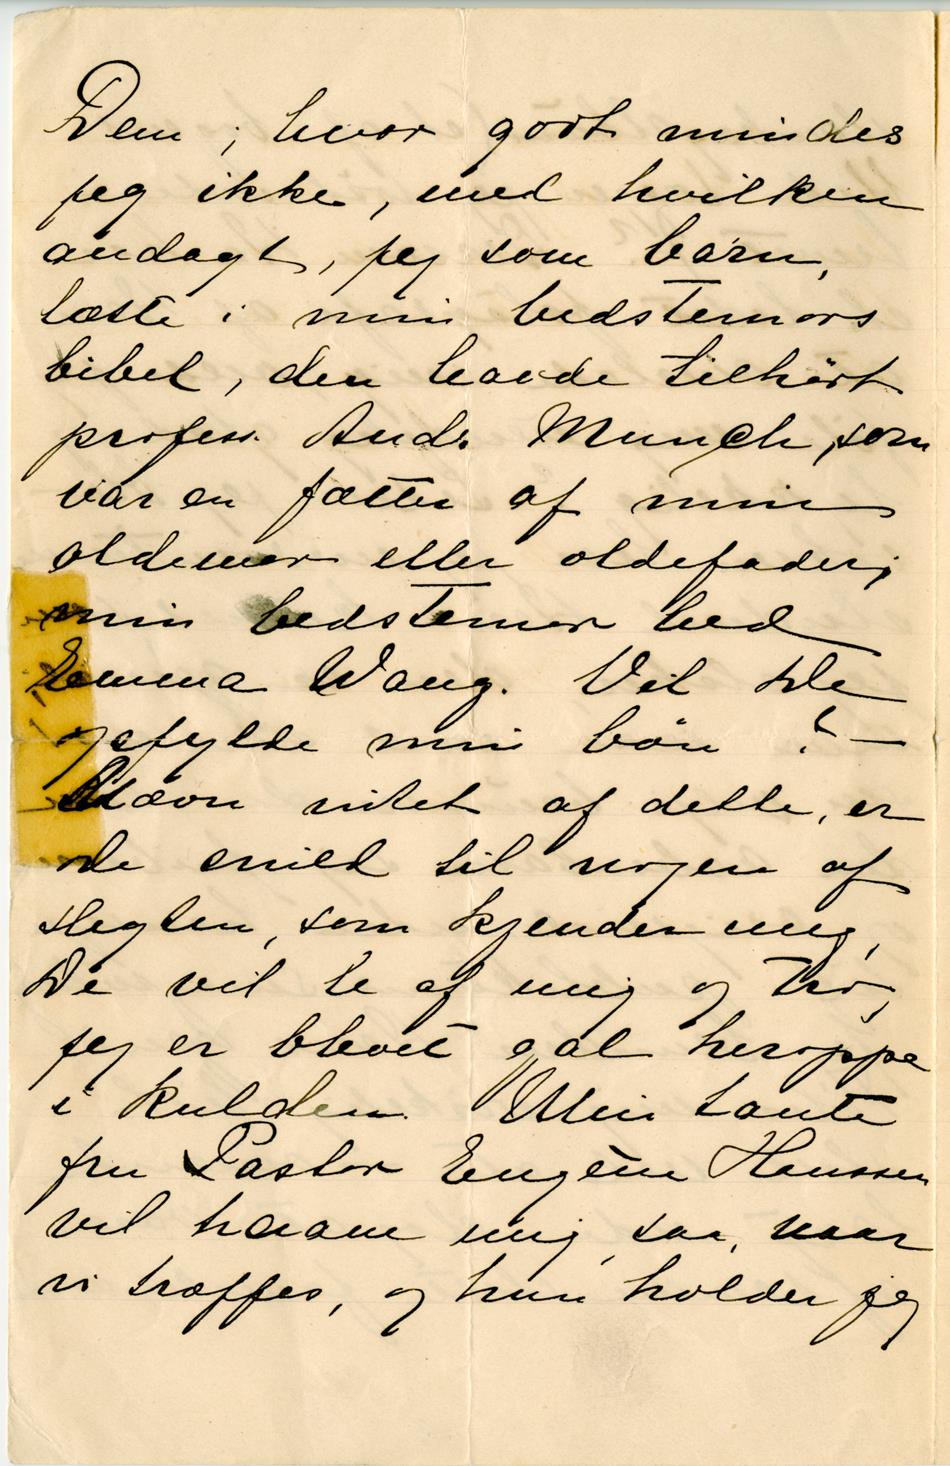 Dem; hvor godt mindes
jeg ikke, med hvilken
andagt, jeg som barn,
læste i min bedstemors
bibel, den havde tilhørt
profess. Andr. Munch, som
var en fætter af min
oldemor eller oldefader;
min bedstemor hed
Emma Wang. Vil De
opfylde min bøn? —
Nævn intet af dette, er
de snild til nogen af
slegten, som kjender mig,
De vil le af mig og tro,
jeg er blevet gal heroppe
i kulden. Min tante
fru Pastor Eugène Hanssen
vil haane mig, saa, naar
vi træffes, og hun holder jeg